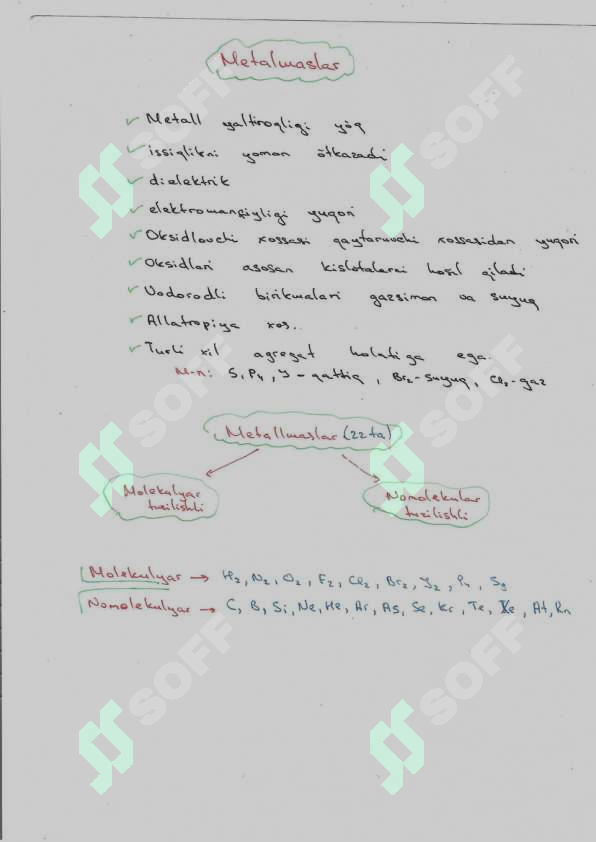 Metalmaslar
Metall yaltiroqligi yöq
issiqlikni yomon ötkazadi
dielektrik
elektromanfiyligi yuqori
Oksidlovchi xossasi qaytaruvchi xossasidan yuqori
Oksidlari asosan kislotalarni hosil qiladi
Vodorodli birikmalari gazsimon va suyuq
Allatropiya xos.
Turli xil agregat holatiga ega.
M-n: S, P4, J - qattiq, Br2-suyuq, Cl2-gaz
Metallmaslar (22ta)
Molekulyar tuzilishli
Nomolekular tuzilishli
Molekulyar → H2, N2, O2, F2, Cl2, Br2, J2, P4, S8
Nomolekulyar → C, B, Si, Ne, He, Ar, As, Se, Kr, Te, Xe, At, Rn
SOFF
SOFF
SOFF
SOFF
SOFF
SOFF